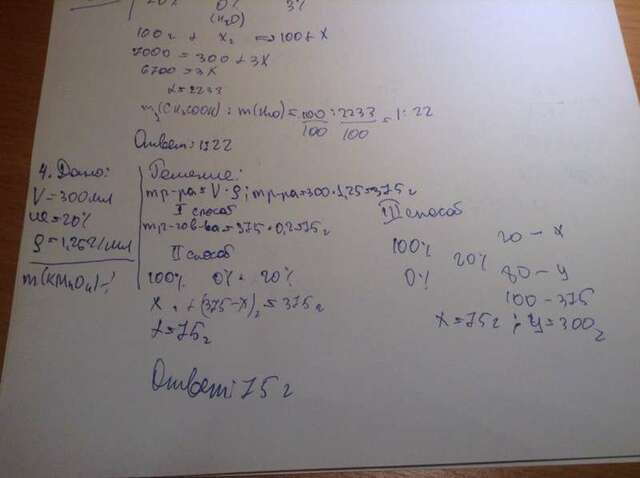 0%
3%
(H₂O)
100г + X г => 100+X
7000 = 300+3X
6700 = 3X
X=2233
m(CH₃COOH) : m(H₂O) = 100/100 : 2233/100 = 1:22
Ответ: 1:22
4. Дано:
V=300мл
ω=20%
ρ=1,25г/мл
m(KMnO₄)-?
Решение:
mр-ра=V·ρ; mр-ра=300·1,25=375г
I способ
mр-гов-ва=375·0,2=75г
II способ
100% 0% 20%
X г + (375-X)г = 375г
X=75г
III способ
100% 20 – X
20%
0% 80 – y
100 – 375
X=75г; y=300г
Ответ: 75г